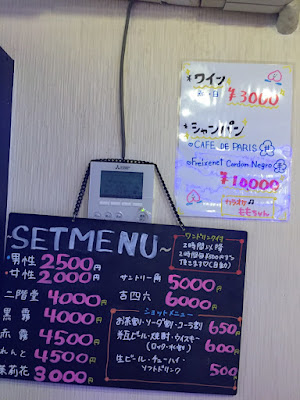 *ワイン
¥3000
*シャンパン
CAFE DE PARIS
Freixenet Cordon Negro
¥10000
カラオケ
ももちゃん
~SETMENU~
・男性 2500円
・女性 2000円
二階堂 4000円
黒霧 4000円
赤霧 4500円
れんと 4500円
茉莉花 3000円
ワンドリンク付
2時間以降
サントリー角 5000円
吉四六 6000円
ショットメニュー
お茶割・ソーダ割・コーラ割 650円
瓶ビール・焼酎・ウイスキー
(ロック・水割) 600円
生ビール・チューハイ・
ソフトドリンク 500円